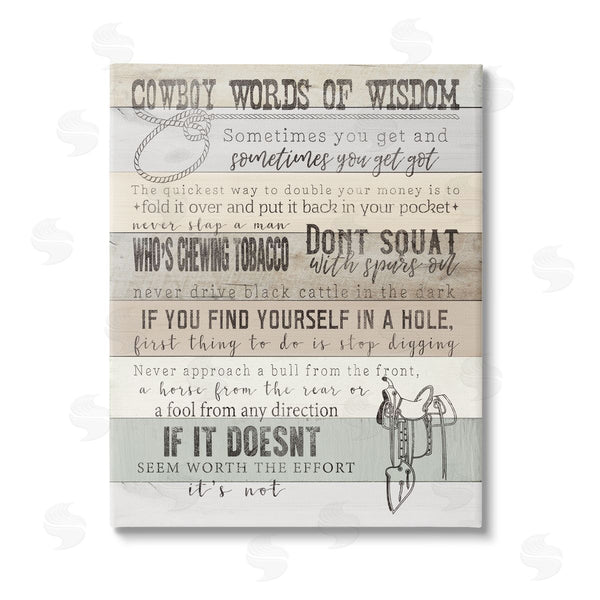 COWBOY WORDS OF WISDOM
Sometimes you get and
sometimes you get got
The quickest way to double your money is to
fold it over and put it back in your pocket
never slap a man
WHO'S CHEWING TOBACCO
DONT SQUAT
with spurs on
never drive black cattle in the dark
IF YOU FIND YOURSELF IN A HOLE,
first thing to do is stop digging
Never approach a bull from the front,
a horse from the rear or
a fool from any direction
IF IT DOESNT
SEEM WORTH THE EFFORT
it's not